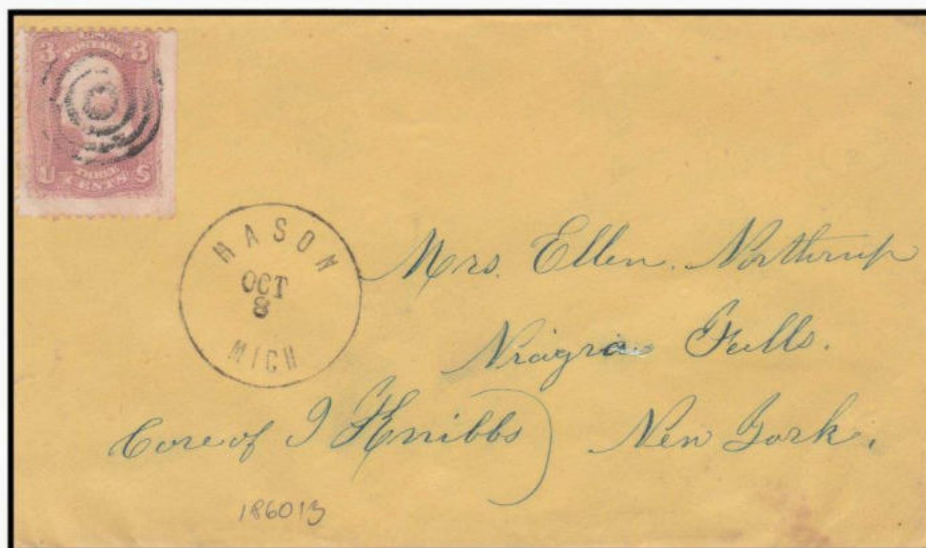 3 POSTAGE 3
U THREE CENTS S
MASON
OCT
8
MICH
Mrs. Ellen. Northrup
Niagra Falls.
Care of I Knibbs) New York.
186013